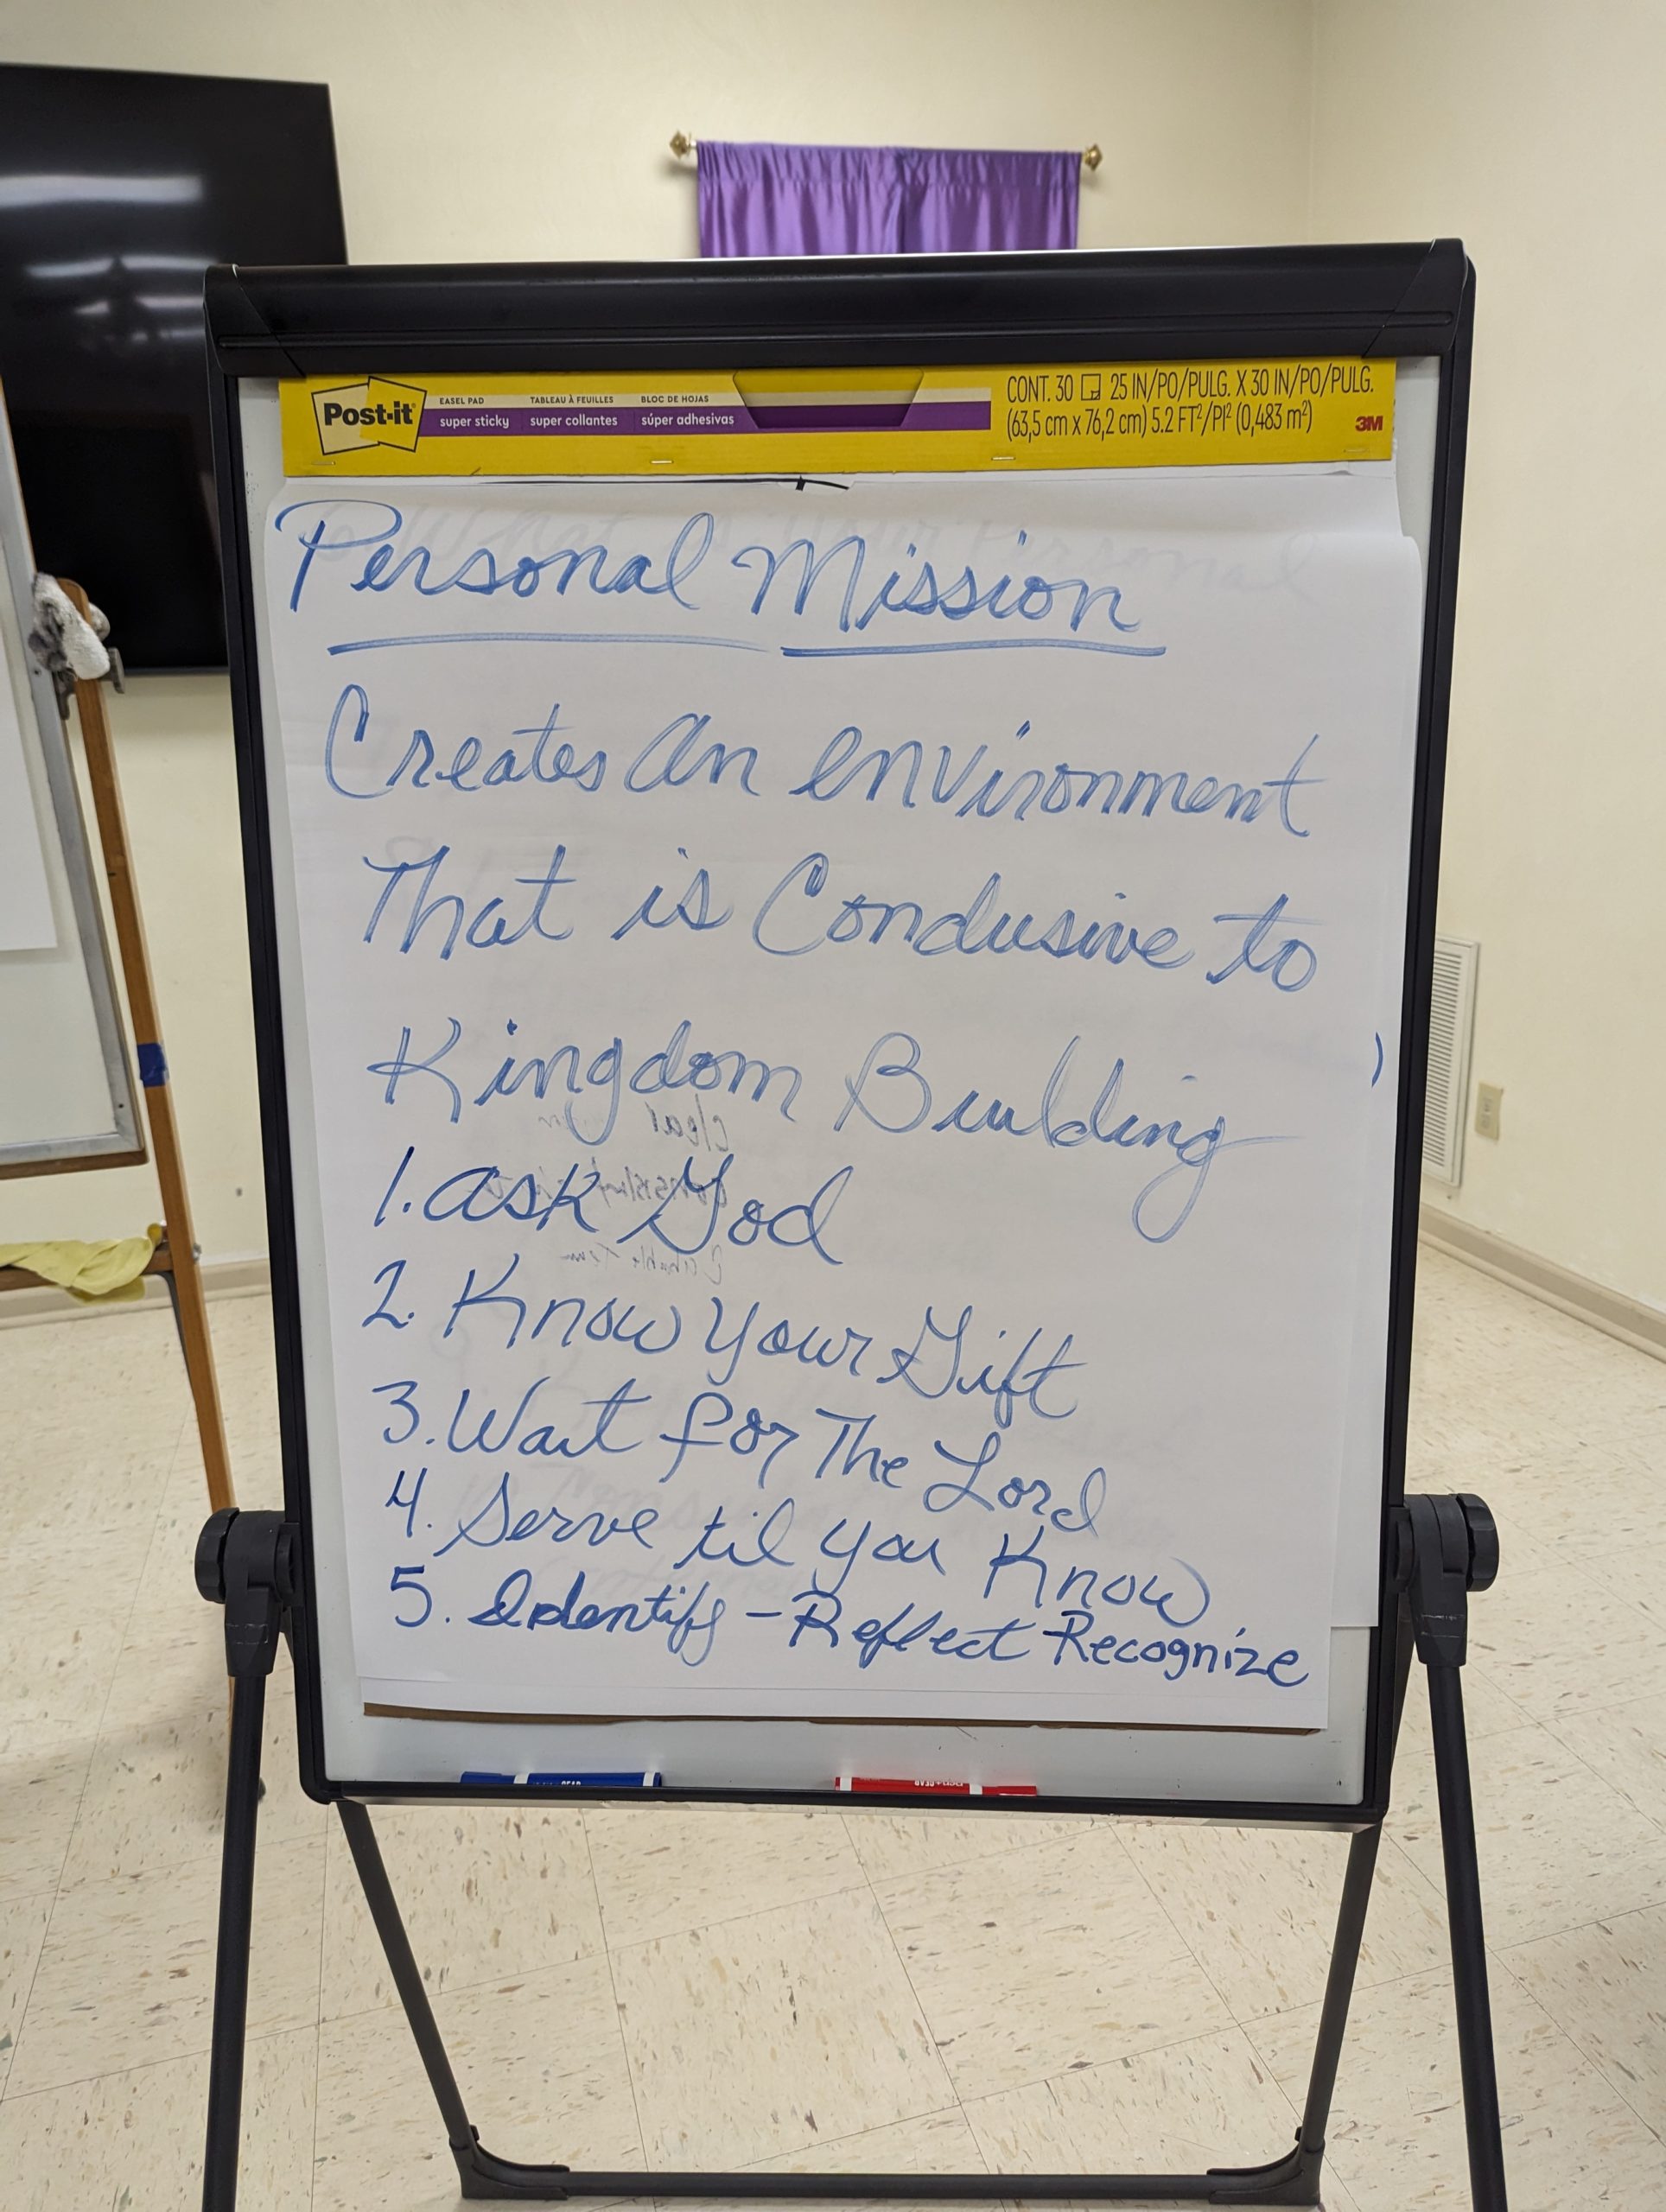 Post-it
EASEL PAD TABLEAU À FEUILLES BLOC DE HOJAS
super sticky super collantes súper adhesivas
CONT. 30 25 IN/PO/PULG. X 30 IN/PO/PULG.
(63,5 cm x 76,2 cm) 5.2 FT²/PI² (0,483 m²)
3M
Personal Mission
Creates An environment
That is Condusive to
Kingdom Building
1. ask God
2. Know your Gift
3. Wait for The Lord
4. Serve til you Know
5. Identify - Reflect - Recognize